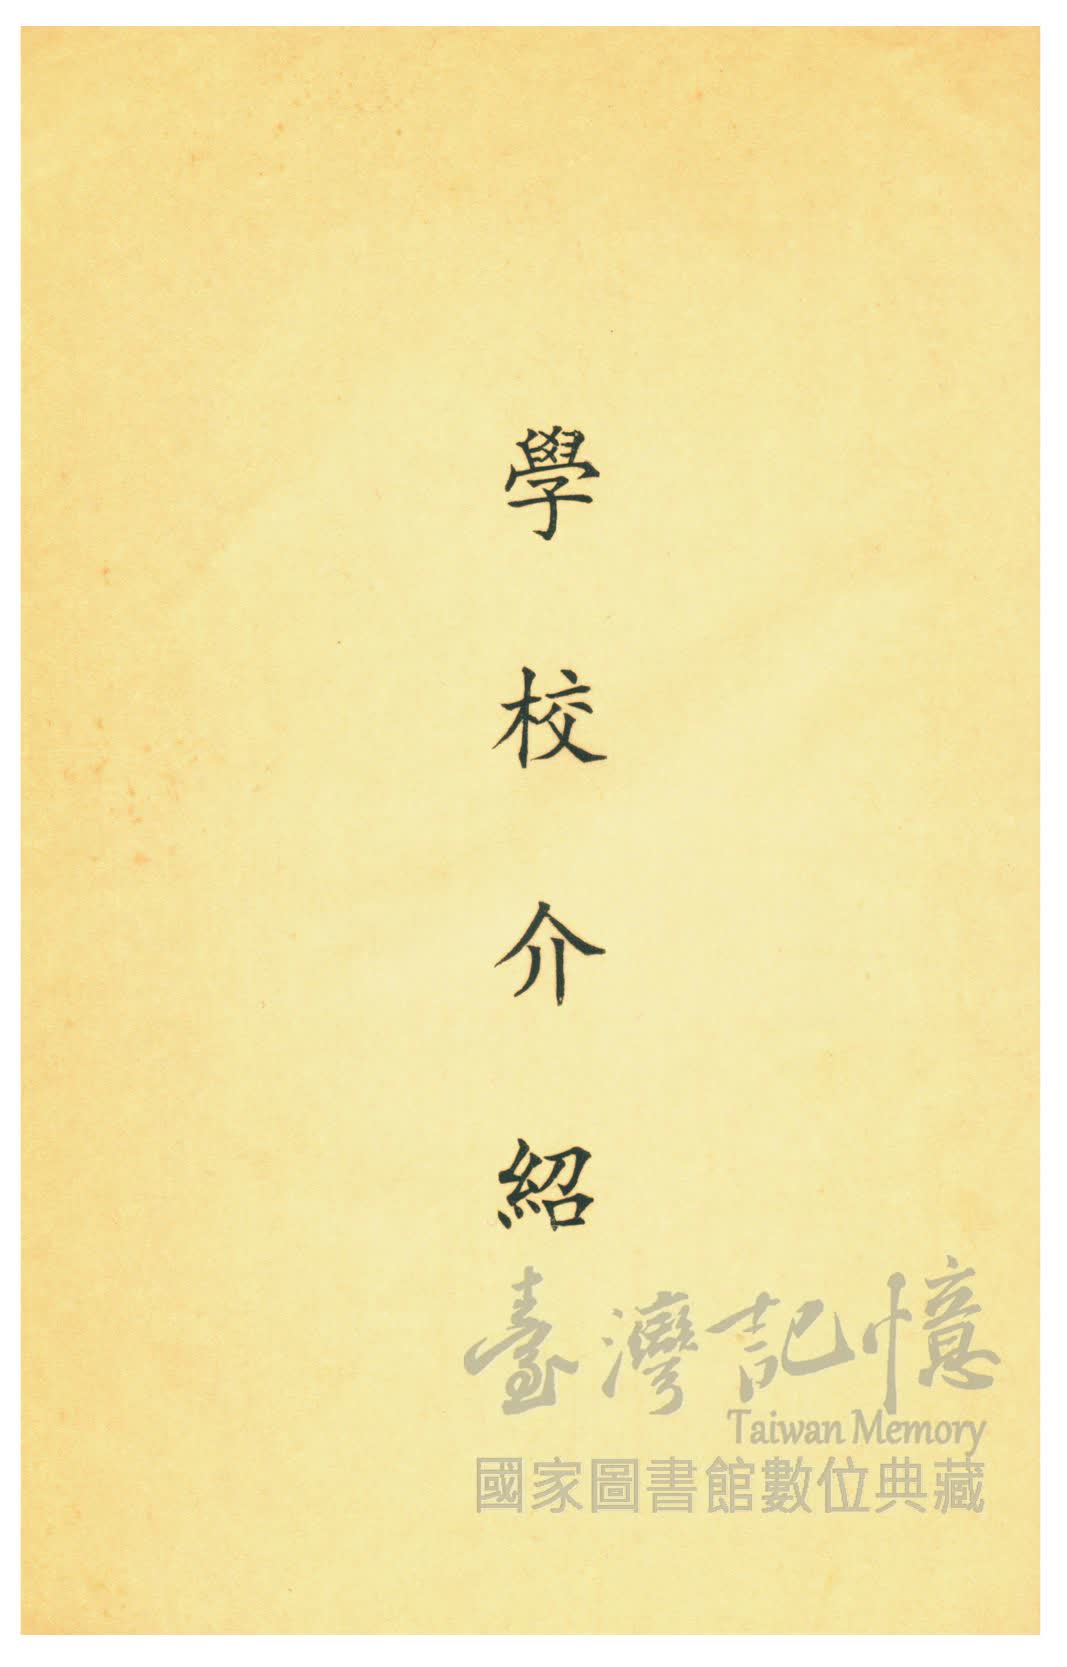 學校介紹
臺灣記憶
Taiwan Memory
國家圖書館數位典藏